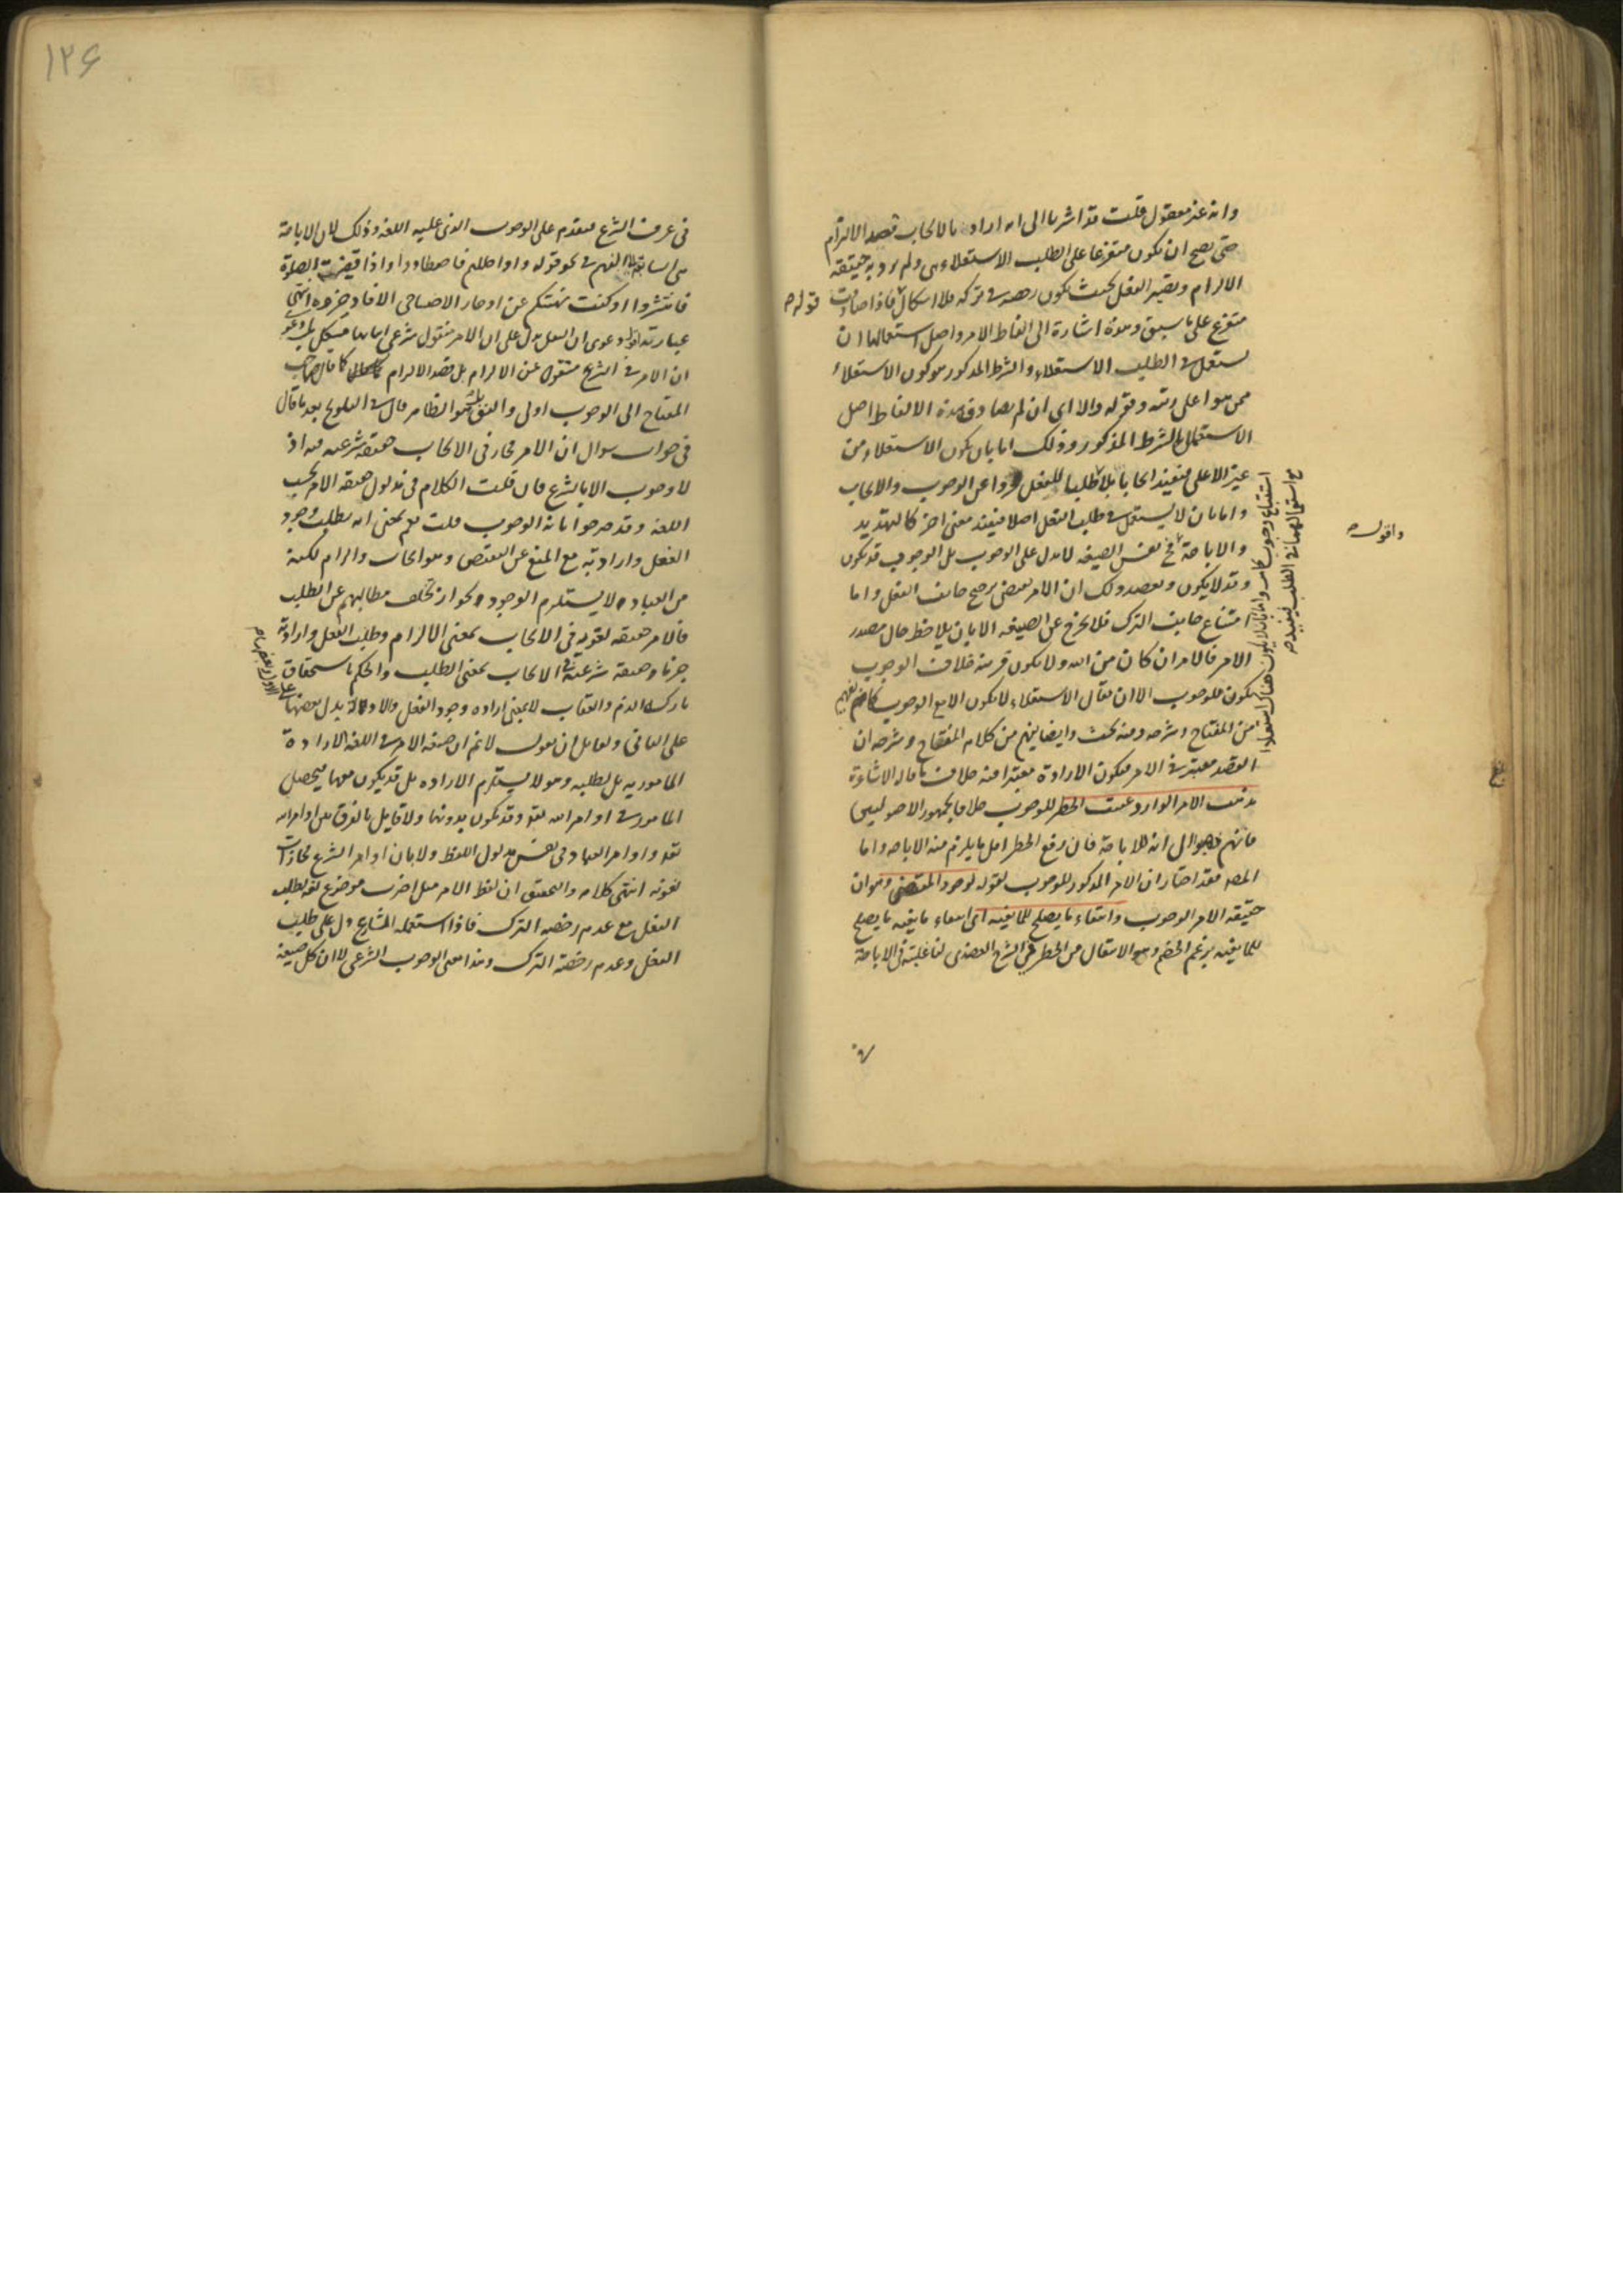 وانه غير معقول قلت قد اشرنا الى انه اراد بالايجاب قصد الالزام
حتى يصح ان يكون متفرعا على الطلب الاستعلاءى ولم يرد به حقيقة
الالزام وتصير الفعل بحيث يكون رخصة في تركه فلا اشكال فاذا صادفت
قوله
متفرع على ما سبق وهذه اشارة الى الفاظ الامر واصل استعمالها ان
يستعمل في الطلب الاستعلاء والشرط المذكور هو كون الاستعلاء
ممن هو اعلى رتبة وقوله والا اى ان لم يصادف هذه الالفاظ اصل
الاستعمال بالشرط المذكور وذلك اما بان يكون الاستعلاء من
غير الاعلى فيفيد ايجابا بل طلبا للفعل مجردا عن الوجوب والايجاب
واما بان لا يستعمل في طلب الفعل اصلا فيفيد معنى اخر كالتهديد
والاباحة فح نفس الصيغة لا تدل على الوجوب بل الوجوب قد يكون
وقد لا يكون ويعضد ذلك ان الامر يقتضى ترجح جانب الفعل واما
امتناع جانب الترك فلا يخرج عن الصيغة الا بان يلاحظ حال مصدر
الامر فالامر ان كان من الله ولا يكون قرينة خلاف الوجوب
يكون للوجوب الا ان يقال الاستعلاء لا يكون الا مع الوجوب كما فهم
من المفتاح وشرحه وفيه بحث وايضا يفهم من كلام المفتاح وشرحه ان
القصد معتبر في الامر فيكون الارادة معتبرا فيه خلاف ما قاله الاشاعرة
يذهب الامر الوارد عقيب الحظر للوجوب خلافا لجمهور الاصوليين
فانهم ذهبوا الى انه للاباحة فان رفع الحظر اصل ما يلزم منه الاباحة واما
المصـ فقد اختار ان الامر المذكور للوجوب لقوله لوجود المقتضى وهو ان
حقيقة الامر الوجوب وانتفاء ما يصلح للمانعية اى انتفاء مانعية ما يصلح
للمانعية بزعم الخصم وهو الانتقال من الحظر في الشرح العضدى لنا غلبته في الاباحة
استتباع وجوب كما مر واما بان لا يكون هناك استعلاء
مع استعمالهما في الطلب فيفيد
واقول
١٢٦
في عرف الشرع فيقدم على الوجوب الذى عليه اللغة وذلك لان الاباحة
هى السابقة الى الفهم في نحو قوله واذا حللتم فاصطادوا واذا قضيت الصلوة
فانتشروا او كنت نهيتكم عن ادخار لحوم الاضاحى الا فادخروه انتهى
عبارته اقول دعوى ان النقل يدل على ان الامر منقول شرعى
ان الامر في الشرع منقول عن الالزام بل قصد الالزام كما قال صاحب
المفتاح الى الوجوب اولى والنقل هو الظاهر قال في التلويح بعد ما قال
في جواب سوال ان الامر مجاز في الايجاب حقيقة شرعية فيه اذ
لا وجوب الا بالشرع فان قلت الكلام في مدلول حقيقة الامر بحسب
اللغة وقد صرحوا بانه الوجوب قلت نعم بمعنى انه يطلب وجود
الفعل وارادته مع المنع عن النقيض وهو ايجاب والزام لكنه
من العباد لا يستلزم الوجود لجواز تخلف مطالبهم عن الطلب
فالامر حقيقة لغوية في الايجاب بمعنى الالزام وطلب الفعل وارادته
جزما وحقيقة شرعية في الايجاب بمعنى الطلب والحكم باستحقاق
تاركه الذم والعقاب لا بمعنى ارادة وجود الفعل والادلة يدل بعضها على
الاول وبعضها
على الثانى ولقائل ان يقول لا نم ان حقيقة الامر في اللغة الارادة
المامور به بل لطلبه وهو لا يستلزم الارادة بل قد يكون معها فيحصل
المامور في اوامر الله تعالى وقد تكون بدونها ولا قايل بالفرق بين اوامر الله
تعالى واوامر العباد في نفس مدلول اللفظ ولا بان اوامر الشرع مجازات
لغوية انتهى كلامه والتحقيق ان لفظ الامر مثل اضرب موضوع لغة لطلب
الفعل مع عدم رخصة الترك فاذا استعمله الشارع دل على طلب
الفعل وعدم رخصة الترك وهذا معنى الوجوب الشرعى لا ان كل صيغة